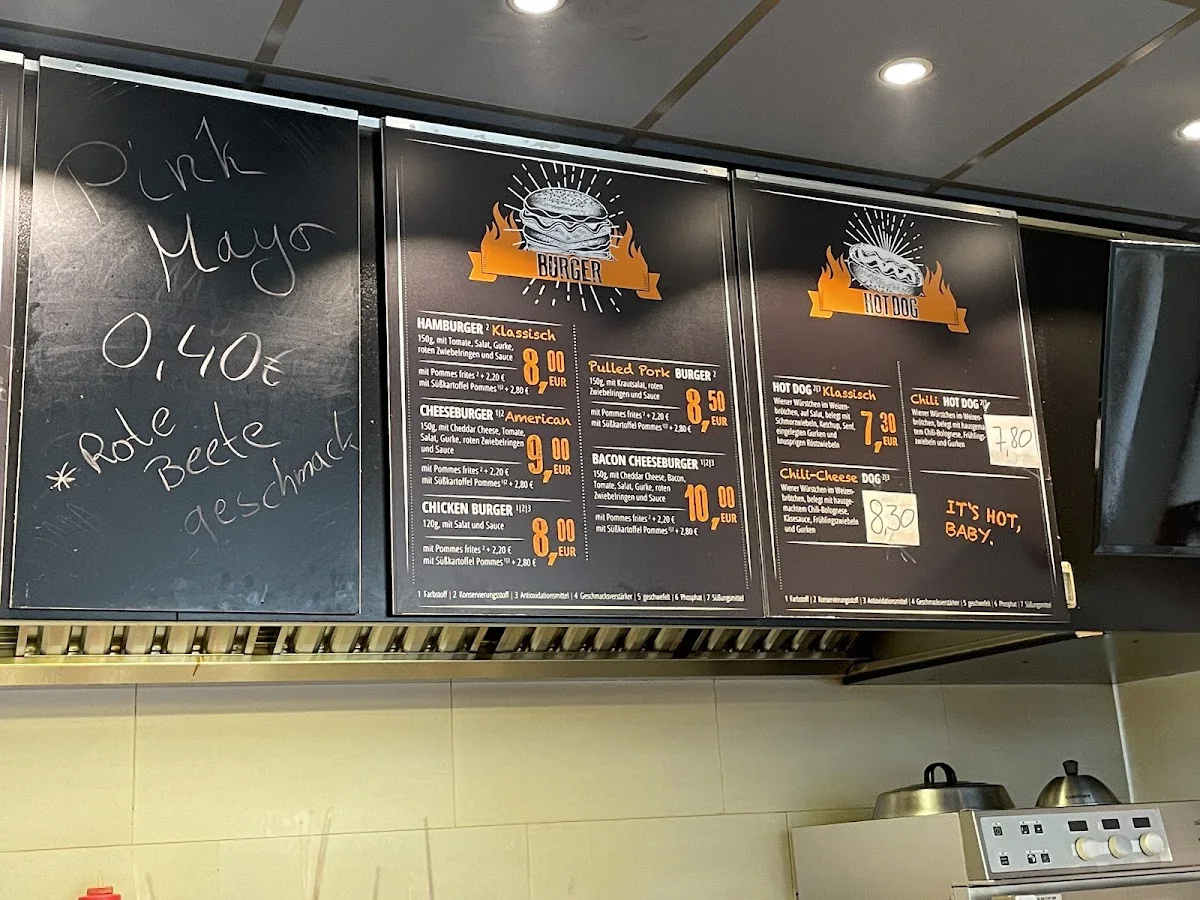 Pink
Mayo
0,40€
* Rote
Beete
geschmack
BURGER
HAMBURGER 2 Klassisch
150g, mit Tomate, Salat, Gurke,
roten Zwiebelringen und Sauce
8,00 EUR
mit Pommes frites 2 + 2,20 €
mit Süßkartoffel Pommes 1|2 + 2,80 €
CHEESEBURGER 1|2 American
150g, mit Cheddar Cheese, Tomate,
Salat, Gurke, roten Zwiebelringen
und Sauce
9,00 EUR
mit Pommes frites 2 + 2,20 €
mit Süßkartoffel Pommes 1|2 + 2,80 €
CHICKEN BURGER 1|2|3
120g, mit Salat und Sauce
8,00 EUR
mit Pommes frites 2 + 2,20 €
mit Süßkartoffel Pommes 1|2 + 2,80 €
Pulled Pork BURGER 2
150g, mit Krautsalat, roten
Zwiebelringen und Sauce
8,50 EUR
mit Pommes frites 2 + 2,20 €
mit Süßkartoffel Pommes 1|2 + 2,80 €
BACON CHEESEBURGER 1|2|3
150g, mit Cheddar Cheese, Bacon,
Tomate, Salat, Gurke, roten
Zwiebelringen und Sauce
10,00 EUR
mit Pommes frites 2 + 2,20 €
mit Süßkartoffel Pommes 1|2 + 2,80 €
1 Farbstoff | 2 Konservierungsstoff | 3 Antioxidationsmittel | 4 Geschmacksverstärker | 5 geschwefelt | 6 Phosphat | 7 Süßungsmittel
HOT DOG
HOT DOG 2|3 Klassisch
Wiener Würstchen im Weizen-
brötchen, auf Salat, belegt mit
Schmorzwiebeln, Ketchup, Senf,
eingelegten Gurken und
knusprigen Röstzwiebeln
7,30 EUR
Chili-Cheese DOG 2|3
Wiener Würstchen im Weizen-
brötchen, belegt mit hausge-
machtem Chili-Bolognese,
Käsesauce, Frühlingszwiebeln
und Gurken
8,30
Chili HOT DOG 2|3
Wiener Würstchen im Weizen-
brötchen, belegt mit hausgemach-
tem Chili-Bolognese, Frühlings-
zwiebeln und Gurken
7,80
IT'S HOT,
BABY.
1 Farbstoff | 2 Konservierungsstoff | 3 Antioxidationsmittel | 4 Geschmacksverstärker | 5 geschwefelt | 6 Phosphat | 7 Süßungsmittel